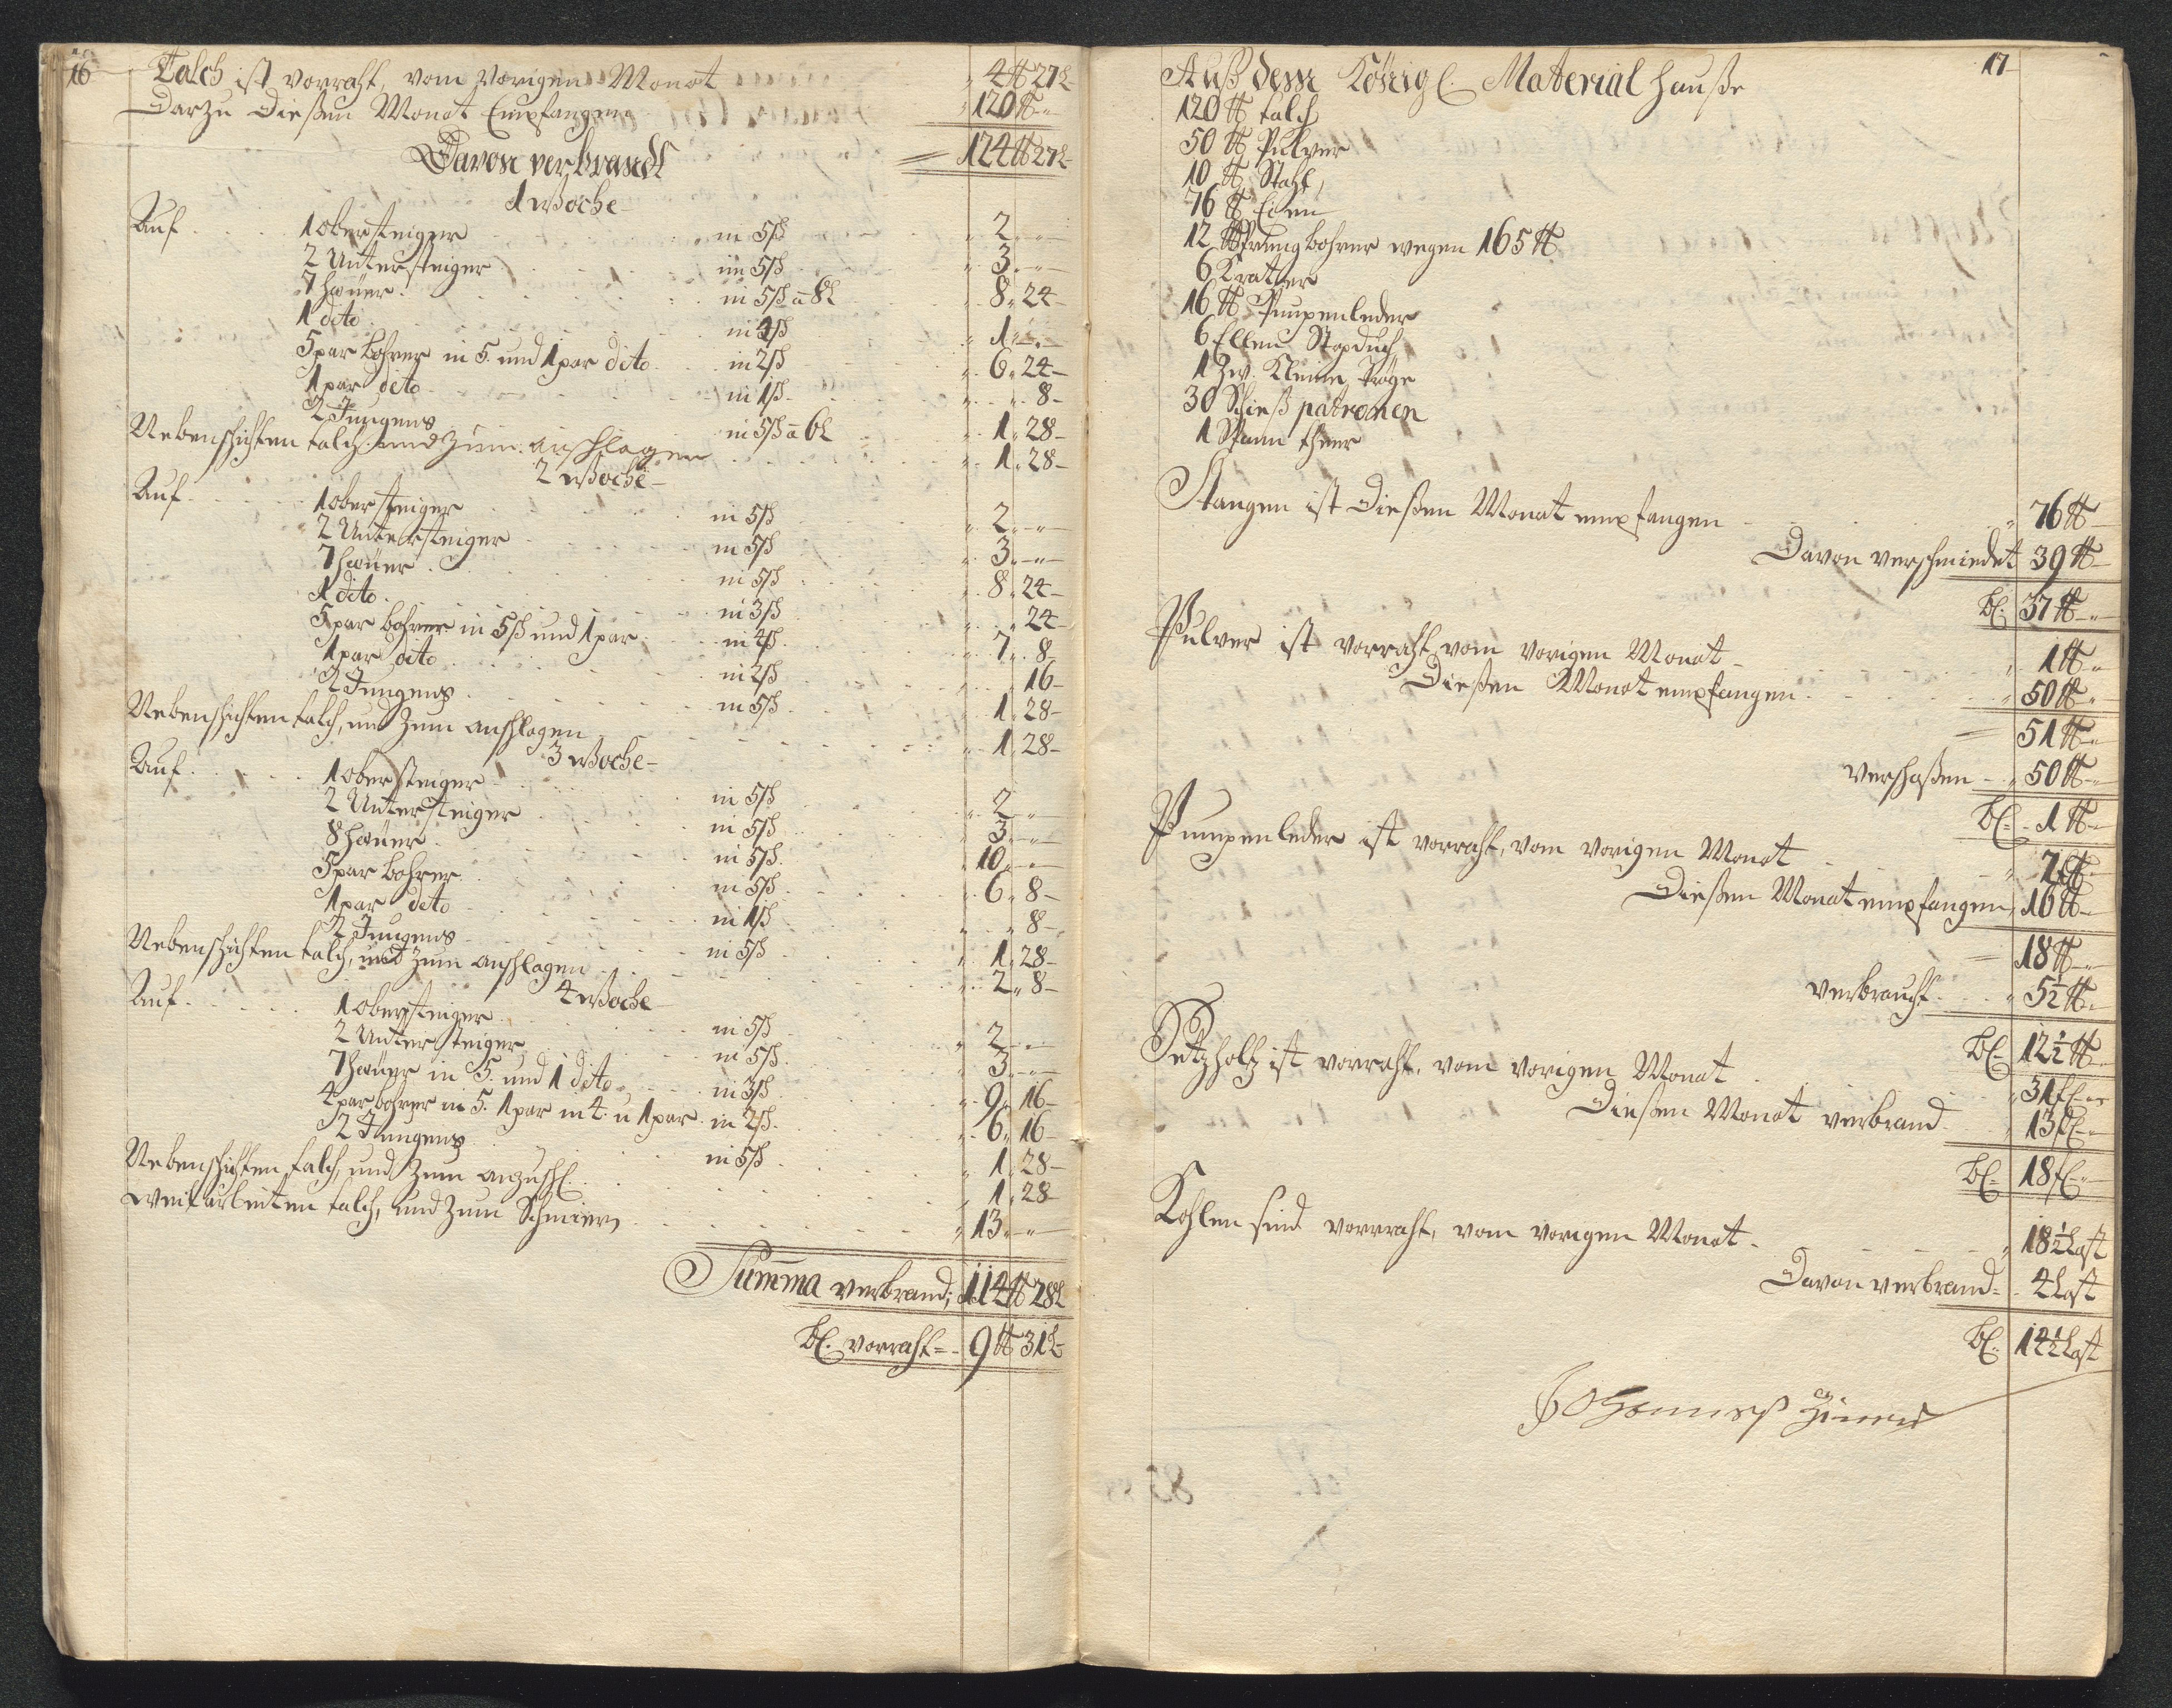 16
Talch ist vorraht, vom Vorigen Monat " 4 ℔ 27 L
Darzu Dießen Monat Empfangen " 120 ℔ "
124 ℔ 27 L
Davon verbrandt
1 Woche
Auf 1 obersteiger in 5 ß 2 "
2 Untersteiger in 5 ß 3 "
7 haüer in 5 ß a 8 L 8 " 24
1 dito in 4 ß 1 "
5 par bohrer in 5. und 1 par dito in 2 ß 6 " 24
1 par dito in 1 ß " 8
2 Jungens in 5 ß a 6 L 1 " 28
Nebenschichten talch und zum anschlagen 1 " 28
2 Woche
Auf 1 obersteiger in 5 ß 2 "
2 Untersteiger in 5 ß 3 "
7 haüer in 5 ß 8 " 24
1 dito in 3 ß " 24
5 par bohrer in 5 ß und 1 par in 4 ß 7 " 8
1 par dito in 2 ß " 16
2 Jungens in 5 ß 1 " 28
Nebenschichten talch, und zum anschlagen 1 " 28
3 Woche
Auf 1 obersteiger in 5 ß 2 "
2 Untersteiger in 5 ß 3 "
8 haüer in 5 ß 10 "
5 par bohrer in 5 ß 6 " 8
1 par dito in 1 ß " 8
2 Jungens in 5 ß 1 " 28
Nebenschichten talch, und zum anschlagen 2 " 8
4 Woche
Auf 1 obersteiger in 5 ß 2 "
2 Untersteiger in 5 ß 3 "
7 haüer in 5. und 1 dito in 3 ß 9 " 16
4 par bohrer in 5. 1 par in 4. u 1 par in 2 ß 6 " 16
2 Jungens in 5 ß 1 " 28
Nebenschichten talch, und zum anzuschl. 1 " 28
weilarbeiten talch, und zum Schmiern 13 "
Summa verbrand; 114 ℔ 28 L
bl. vorraht 9 ℔ 31 L
17
Auß dem Königl. Material hauße
120 ℔ talch
50 ℔ Pulver
10 ℔ Stahl,
76 ℔ Eisen
12 Sprengbohrer wegen 165 ℔
6 Kratzer
16 ℔ Pumpenleder
6 Ellen Stopduch
1 Zw. Kleine Tröge
30 Schieß patronen
1 Spann theer
Stangen ist Dießen Monat empfangen " 76 ℔
Davon verschmiedet 39 ℔
bl: 37 ℔
Pulver ist vorraht, vom vorigen Monat " 1 ℔
Dießen Monat empfangen " 50 ℔
51 ℔
verschoßen " 50 ℔
bl: 1 ℔
Pumpenleder ist vorraht, vom vorigen Monat " 2 ℔
Dießen Monat empfangen " 16 ℔
18 ℔
verbraucht " 5 1/2 ℔
bl: 12 1/2 ℔
Setzholtz ist vorraht, vom vorigen Monat " 31 fl
Dießen Monat verbrand " 13 fl
bl: 18 fl
Kohlen sind vorraht, vom vorigen Monat " 18 1/2 Last
Davon verbrand 4 Last
bl: 14 1/2 Last
Johannes